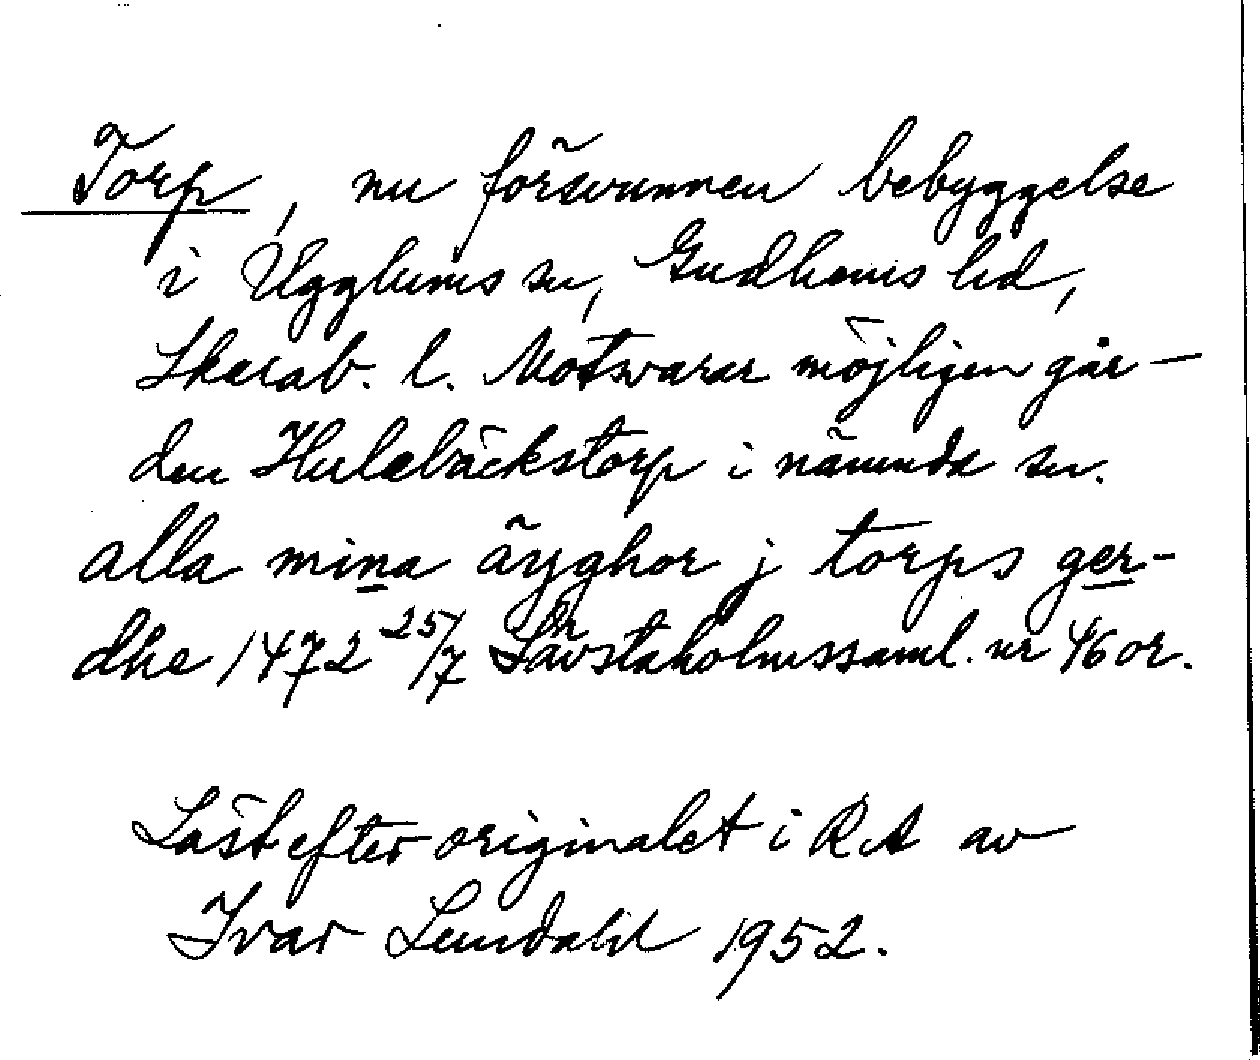 Torp, nu försvunnen bebyggelse
i Ugglums sn, Gudhems hd,
Skarab. l. Motsvarar möjligen går-
den Hulebäckstorp i nämnda sn.
alla mina äyghor j torps ger-
dhe 1472 25/7 Sävstaholmssaml. nr 46 or.
Läst efter originalet i RA av
Ivar Lundahl 1952.